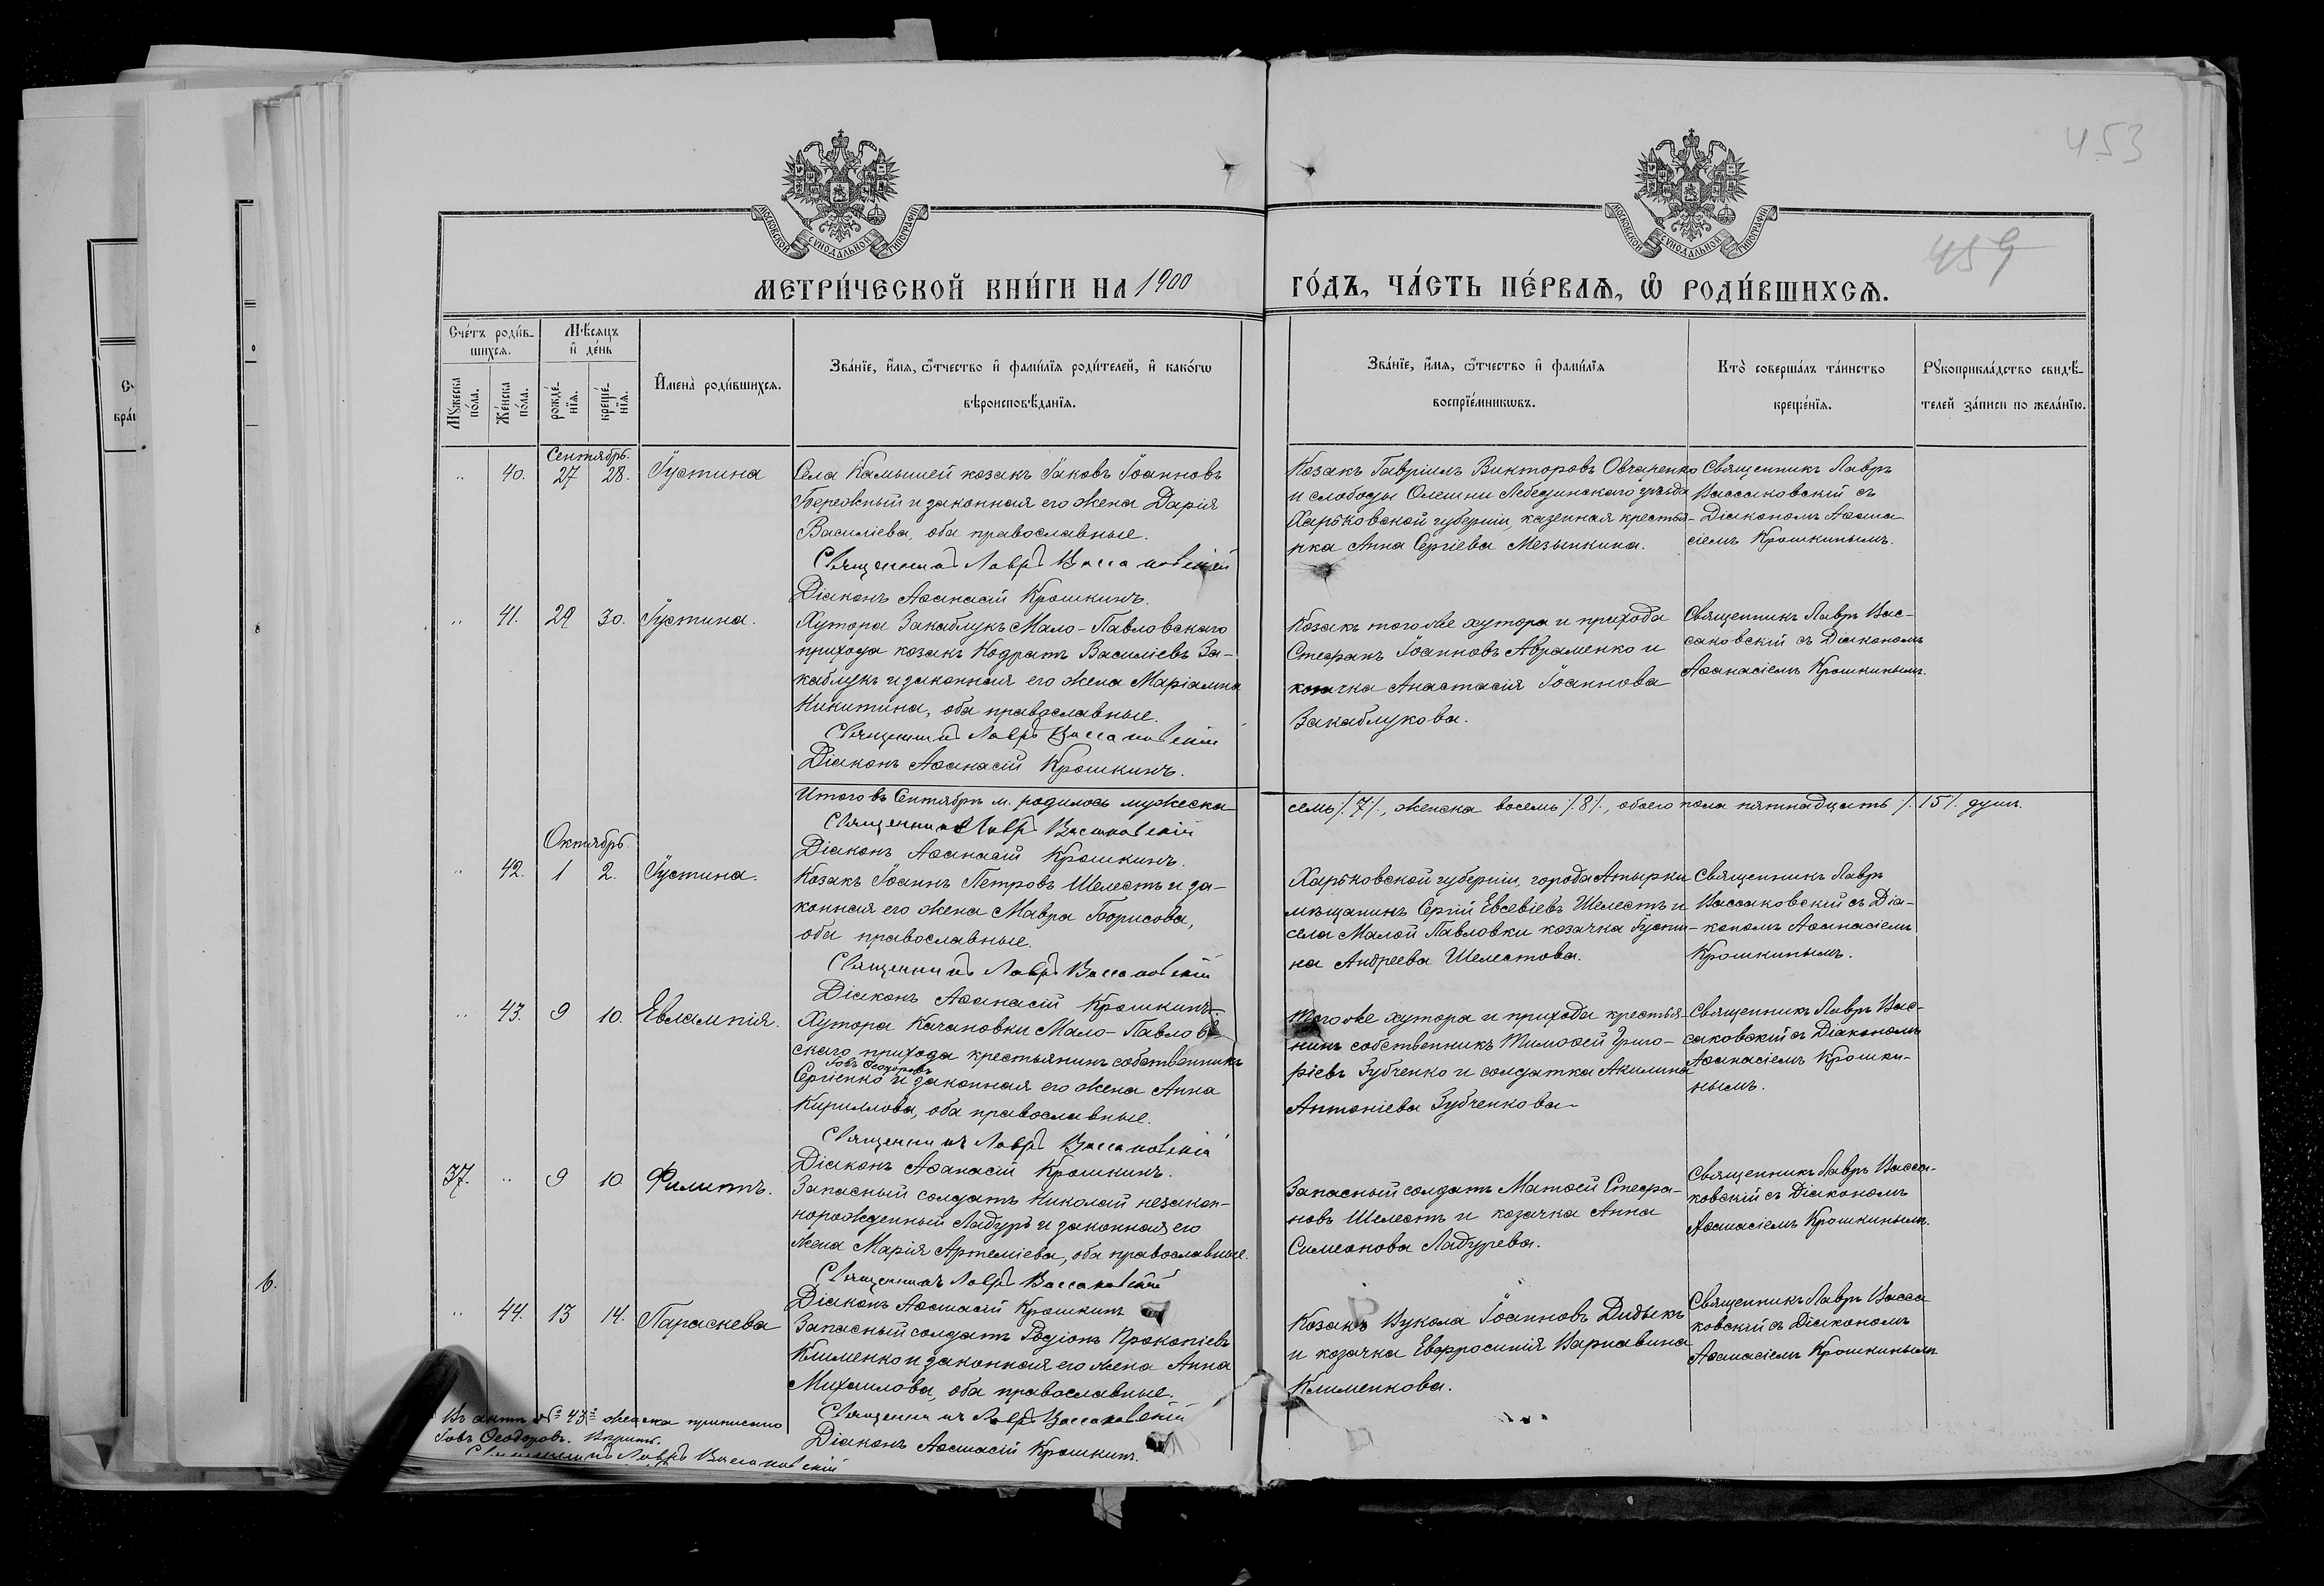 453
459
МОСКОВСКОЙ СѴНОДАЛЬНОЙ ТИПОГРАФІИ
МОСКОВСКОЙ СѴНОДАЛЬНОЙ ТИПОГРАФІИ
МЕТРИ́ЧЕСКОЙ КНИ́ГИ НА 1900
ГО́ДЪ, ЧА́СТЬ ПЕ́РВАѦ, Ѡ҆ РОДИ́ВШИХСѦ.
Сче́тъ роди́в-
шихсѧ.
Мꙋ́жеска
по́ла.
Же́нска
по́ла.
Мѣ́сѧцъ
и҆ де́нь
рожде́-
нїѧ.
креще́-
нїѧ.
И҆мена̀ роди́вшихсѧ.
Зва́нїе, и҆́мѧ, ѻ҆́тчество и҆ фамі́лїѧ роди́телей, и҆ како́гѡ
вѣроисповѣ́данїѧ.
Зва́нїе, и҆́мѧ, ѻ҆́тчество и҆ фамі́лїѧ
воспрїе́мникѡвъ.
Кто̀ соверша́лъ та́инство
креще́нїѧ.
Рꙋкоприкла́дство свидѣ́-
телей за́писи по жела́нїю.
Сентябрь.
" 40. 27 28. Іустина
Села Камышей козакъ Іаковъ Іоанновъ
Бережный и законная его жена Дарія
Василіева, оба православные.
Священникъ Лавръ Вассаковскій
Діаконъ Аѳанасій Крошкинъ.
Козакъ Гавріилъ Викторовъ Овчаренко
и слободы Олешни Лебединскаго уѣзда
Харьковской губерніи, казенная крестья-
нка Анна Сергіева Мезынкина.
Священникъ Лавръ
Вассаковскій съ
Діакономъ Аѳана
сіемъ Крошкинымъ.
" 41. 29 30. Іустина.
Хутора Закаблукъ Мало-Павловскаго
прихода козакъ Кодратъ Василіевъ За-
каблукъ и законная его жена Маріамна
Никитина, оба православные.
Священникъ Лавръ Вассаковскій
Діаконъ Аѳанасій Крошкинъ.
Козакъ того же хутора и прихода
Стефанъ Іоанновъ Авраменко и
козачка Анастасія Іоаннова
Закаблукова.
Священникъ Лавръ Вас-
саковскій съ Діакономъ
Аѳанасіемъ Крошкинымъ.
Итого въ Сентябрѣ м. родилось мужеска
семь /.7/., женска восемь /.8/., обоего пола пятнадцать /.15/. душъ.
Священникъ Лавръ Вассаковскій
Діаконъ Аѳанасій Крошкинъ.
Октябрь.
" 42. 1 2. Іустина.
Козакъ Іоаннъ Петровъ Шелестъ и за-
конная его жена Мавра Борисова,
оба православные.
Священникъ Лавръ Вассаковскій
Діаконъ Аѳанасій Крошкинъ.
Харьковской губерніи, города Ахтырки
мѣщанинъ Сергій Евсевіевъ Шелестъ и
села Малой Павловки козачка Іусти-
на Андреева Шелестова.
Священникъ Лавръ
Вассаковскій съ Діа-
кономъ Аѳанасіемъ
Крошкинымъ.
" 43. 9 10. Евлампія.
Хутора Качановки Мало-Павлов-
скаго прихода крестьянинъ собственникъ
Іовъ Ѳеодоровъ
Сергіенко и законная его жена Анна
Кириллова, оба православные.
Священникъ Лавръ Вассаковскій
Діаконъ Аѳанасій Крошкинъ.
Того же хутора и прихода крестья-
нинъ собственникъ Тимоѳей Григо-
ріевъ Зубченко и солдатка Акилина
Антоніева Зубченкова
Священникъ Лавръ Вас-
саковскій съ Діакономъ
Аѳанасіемъ Крошки-
нымъ.
37. " 9 10. Филиппъ.
Запасный солдатъ Николай незакон-
норожденный Ладуръ и законная его
жена Марія Артеміева, оба православные.
Священникъ Лавръ Вассаковскій
Діаконъ Аѳанасій Крошкинъ
Запасный солдатъ Матѳей Стефа-
новъ Шелестъ и козачка Анна
Симеонова Ладурева.
Священникъ Лавръ Васса-
ковскій съ Діакономъ
Аѳанасіемъ Крошкинымъ.
" 44. 13 14. Параскева
Запасный солдатъ Родіонъ Прокопіевъ
Клименко и законная его жена Анна
Михаилова, оба православные.
Священникъ Лавръ Вассаковскій
Діаконъ Аѳанасій Крошкинъ.
Козакъ Вукола Іоанновъ Дидыкъ
и козачка Евфросинія Варнавина
Клименкова.
Священникъ Лавръ Васса
ковскій съ Діакономъ
Аѳанасіемъ Крошкинымъ
Въ актѣ № 43 женска приписано
Іовъ Ѳеодоровъ. Вѣрить.
Священникъ Лавръ Вассаковскій